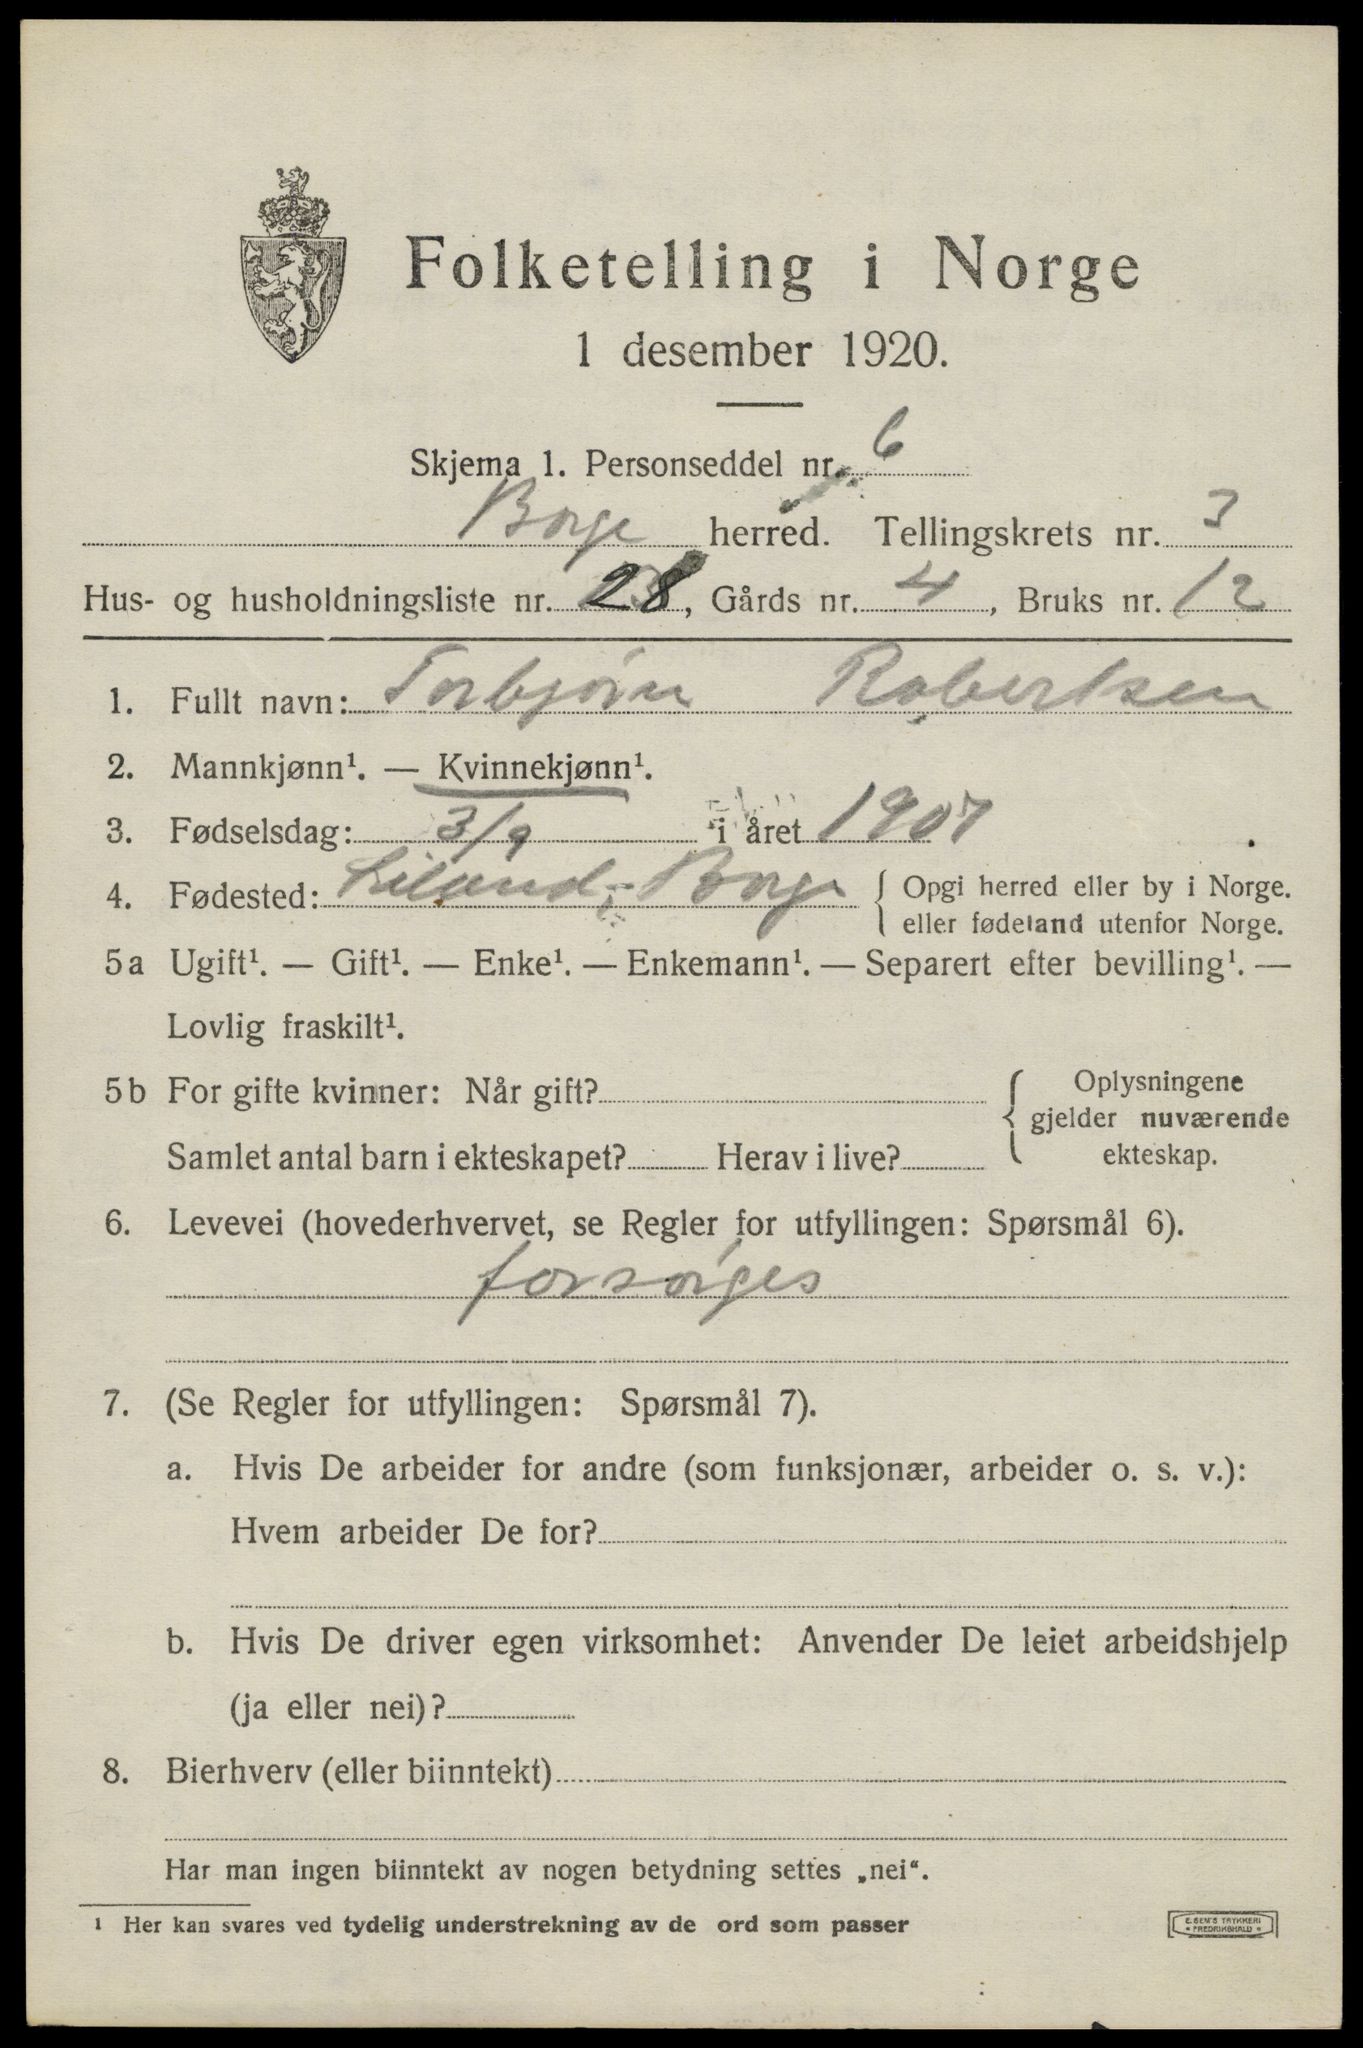 Folketelling i Norge
1 desember 1920.
Skjema 1. Personseddel nr. 6
Borge herred. Tellingskrets nr. 3
Hus- og husholdningsliste nr. 28, Gårds nr. 4, Bruks nr. 12
1. Fullt navn: Torbjörn Robertsen
2. Mannkjønn¹. — Kvinnekjønn¹.
3. Fødselsdag: 3/9 i året 1907.
4. Fødested: Liland, Borge { Opgi herred eller by i Norge.
eller fødeland utenfor Norge.
5a Ugift¹. — Gift¹. — Enke¹. — Enkemann¹. — Separert efter bevilling¹. —
Lovlig fraskilt¹.
5b For gifte kvinner: Når gift? { Oplysningene
gjelder nuværende
Samlet antal barn i ekteskapet? Herav i live? ekteskap.
6. Levevei (hovederhvervet, se Regler for utfyllingen: Spørsmål 6).
forsörges
7. (Se Regler for utfyllingen: Spørsmål 7).
a. Hvis De arbeider for andre (som funksjonær, arbeider o. s. v.):
Hvem arbeider De for?
b. Hvis De driver egen virksomhet: Anvender De leiet arbeidshjelp
(ja eller nei)?
8. Bierhverv (eller biinntekt)
Har man ingen biinntekt av nogen betydning settes „nei“.
¹ Her kan svares ved tydelig understrekning av de ord som passer
E. SEM'S TRYKKERI
* FREDRIKSHALD *